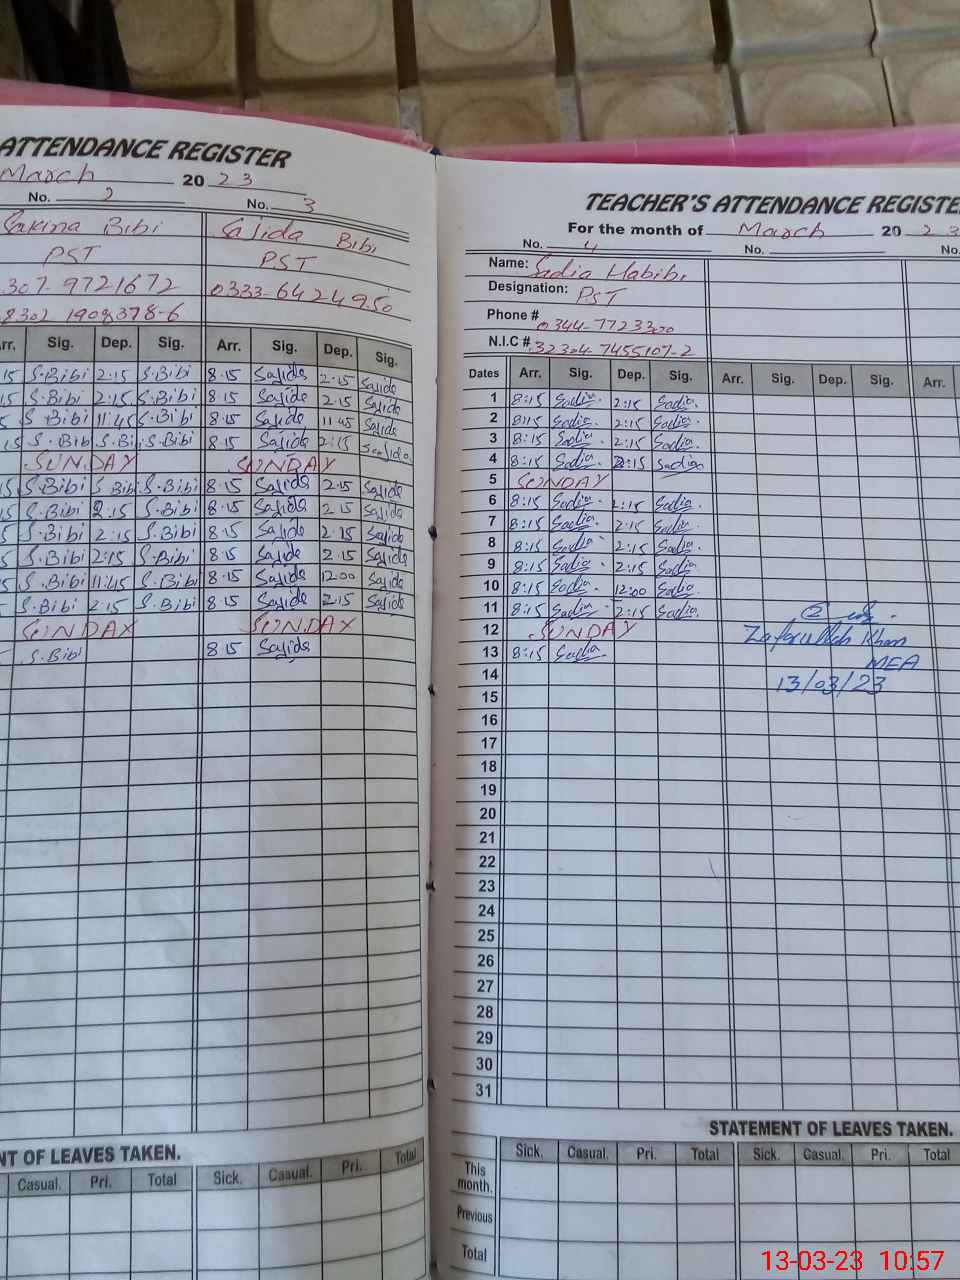 ATTENDANCE REGISTER
March 20 23
No. 2 No. 3
Sakina Bibi Sajida Bibi
PST PST
307-9721672 0333-6424950
8302 1908378-6
Arr. Sig. Dep. Sig. Arr. Sig. Dep. Sig.
15 S.Bibi 2:15 S.Bibi 8:15 Sajida 2:15 Sajida
15 S.Bibi 2:15 S.Bibi 8:15 Sajida 2:15 Sajida
5 S.Bibi 11:45 S.Bibi 8:15 Sajida 11:45 Sajida
15 S.Bibi S.Bi S.Bibi 8:15 Sajida 2:15 Sajida
SUNDAY SUNDAY
15 S.Bibi S.Bibi S.Bibi 8:15 Sajida 2:15 Sajida
15 S.Bibi 2:15 S.Bibi 8:15 Sajida 2:15 Sajida
5 S.Bibi 2:15 S.Bibi 8:15 Sajida 2:15 Sajida
5 S.Bibi 2:15 S.Bibi 8:15 Sajida 2:15 Sajida
5 S.Bibi 11:45 S.Bibi 8:15 Sajida 12:00 Sajida
S.Bibi 2:15 S.Bibi 8:15 Sajida 2:15 Sajida
SUNDAY SUNDAY
S.Bibi 8:15 Sajida
NT OF LEAVES TAKEN.
Casual. Pri. Total Sick. Casual. Pri. Total
TEACHER'S ATTENDANCE REGISTE
For the month of March 20 23
No. 4 No. No.
Name: Sadia Habibi
Designation: PST
Phone # 0344-7723300
N.I.C # 32304-7455107-2
Dates Arr. Sig. Dep. Sig. Arr. Sig. Dep. Sig. Arr.
1 8:15 Sadia. 2:15 Sadia.
2 8:15 Sadia. 2:15 Sadia.
3 8:15 Sadia. 2:15 Sadia.
4 8:15 Sadia. 2:15 Sadia
5 SUNDAY
6 8:15 Sadia. 2:15 Sadia.
7 8:15 Sadia. 2:15 Sadia.
8 8:15 Sadia 2:15 Sadia.
9 8:15 Sadia. 2:15 Sadia.
10 8:15 Sadia. 12:00 Sadia.
11 8:15 Sadia. 2:15 Sadia.
12 SUNDAY
13 8:15 Sadia.
Zafarullah Khan
MEA
13/03/23
14
15
16
17
18
19
20
21
22
23
24
25
26
27
28
29
30
31
STATEMENT OF LEAVES TAKEN.
Sick. Casual. Pri. Total Sick. Casual. Pri. Total
This month.
Previous
Total
13-03-23 10:57